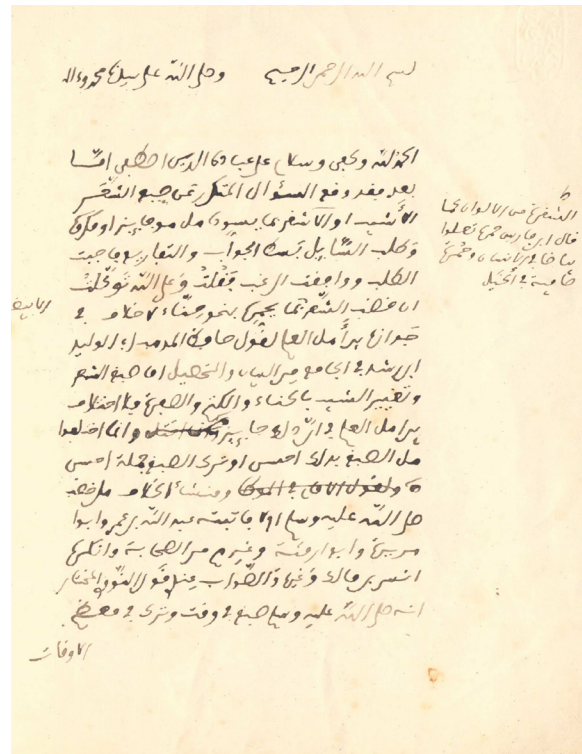 بسم الله الرحمن الرحيم وصلى الله على سيدنا محمد وءاله
الحمد لله وكفى وسلام على عباده الذين اصطفى امّا
بعد فقد وقع السؤال المتكرر عن صبغ الشَّعَر
الأشيب او الأشقر بما يسوده هل هو جايز او مكروه
وطلب السّايل بسط الجواب والتقاريب فاجبت
الطلب ووافقت الرغب فقلت وعلى الله توكلت
اما خضب الشّعر بما يحمره بنحو حنّاء فلا خلاف في
جوازه بين أهل العلم لقول حافظ المذهب ابو الوليد
ابن رشد في الجامع من البيان والتحصيل اما صبغ الشعر
وتغيير الشيب بالحناء والكتم والصفرة فلا اختلاف
بين اهل العلم في انّ ذلك جايز وانما اختلفوا
هل الصبغ بذلك احسن او ترك الصبغ جملة احسن
ومنشأ الخلاف هل خضب
صلى الله عليه وسلم او لا فاثبته عبد الله بن عمر وابوا
هريرة وابوا رمثة وغيرهم من الصحابة وانكرها
انس بن مالك وغيره والصّواب منه قول النووي المختار
انه صلى الله عليه وسلم صبغ في وقت وترك في معظم
الاوقات
الشقرة من الالوان
قال ابن فارس حمرة تعلوا
بياضا في الانسان وحمرة
صافية في الخيل